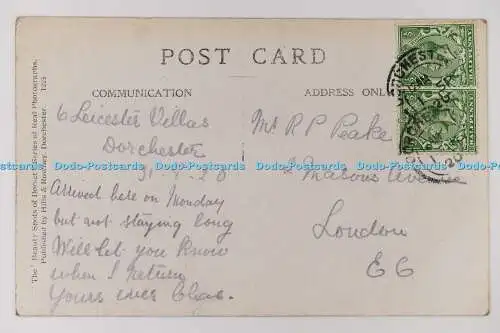 POST CARD
COMMUNICATION
ADDRESS ONLY
6 Leicester Villas
Dorchester
31. 8. 20
Arrived here on Monday
but not staying long
Will let you know
when I return
Yours ever Chas.
Mr R P Peake
2 Masons Avenue
London
E C
The "Beauty Spots of Dorset" Series of Real Photographs.
Published by Hills & Rowney, Dorchester.
DORCHESTER
Dodo-Postcards Dodo-Postcards Dodo-Postcards Dodo-Postcards Dodo-Postcards